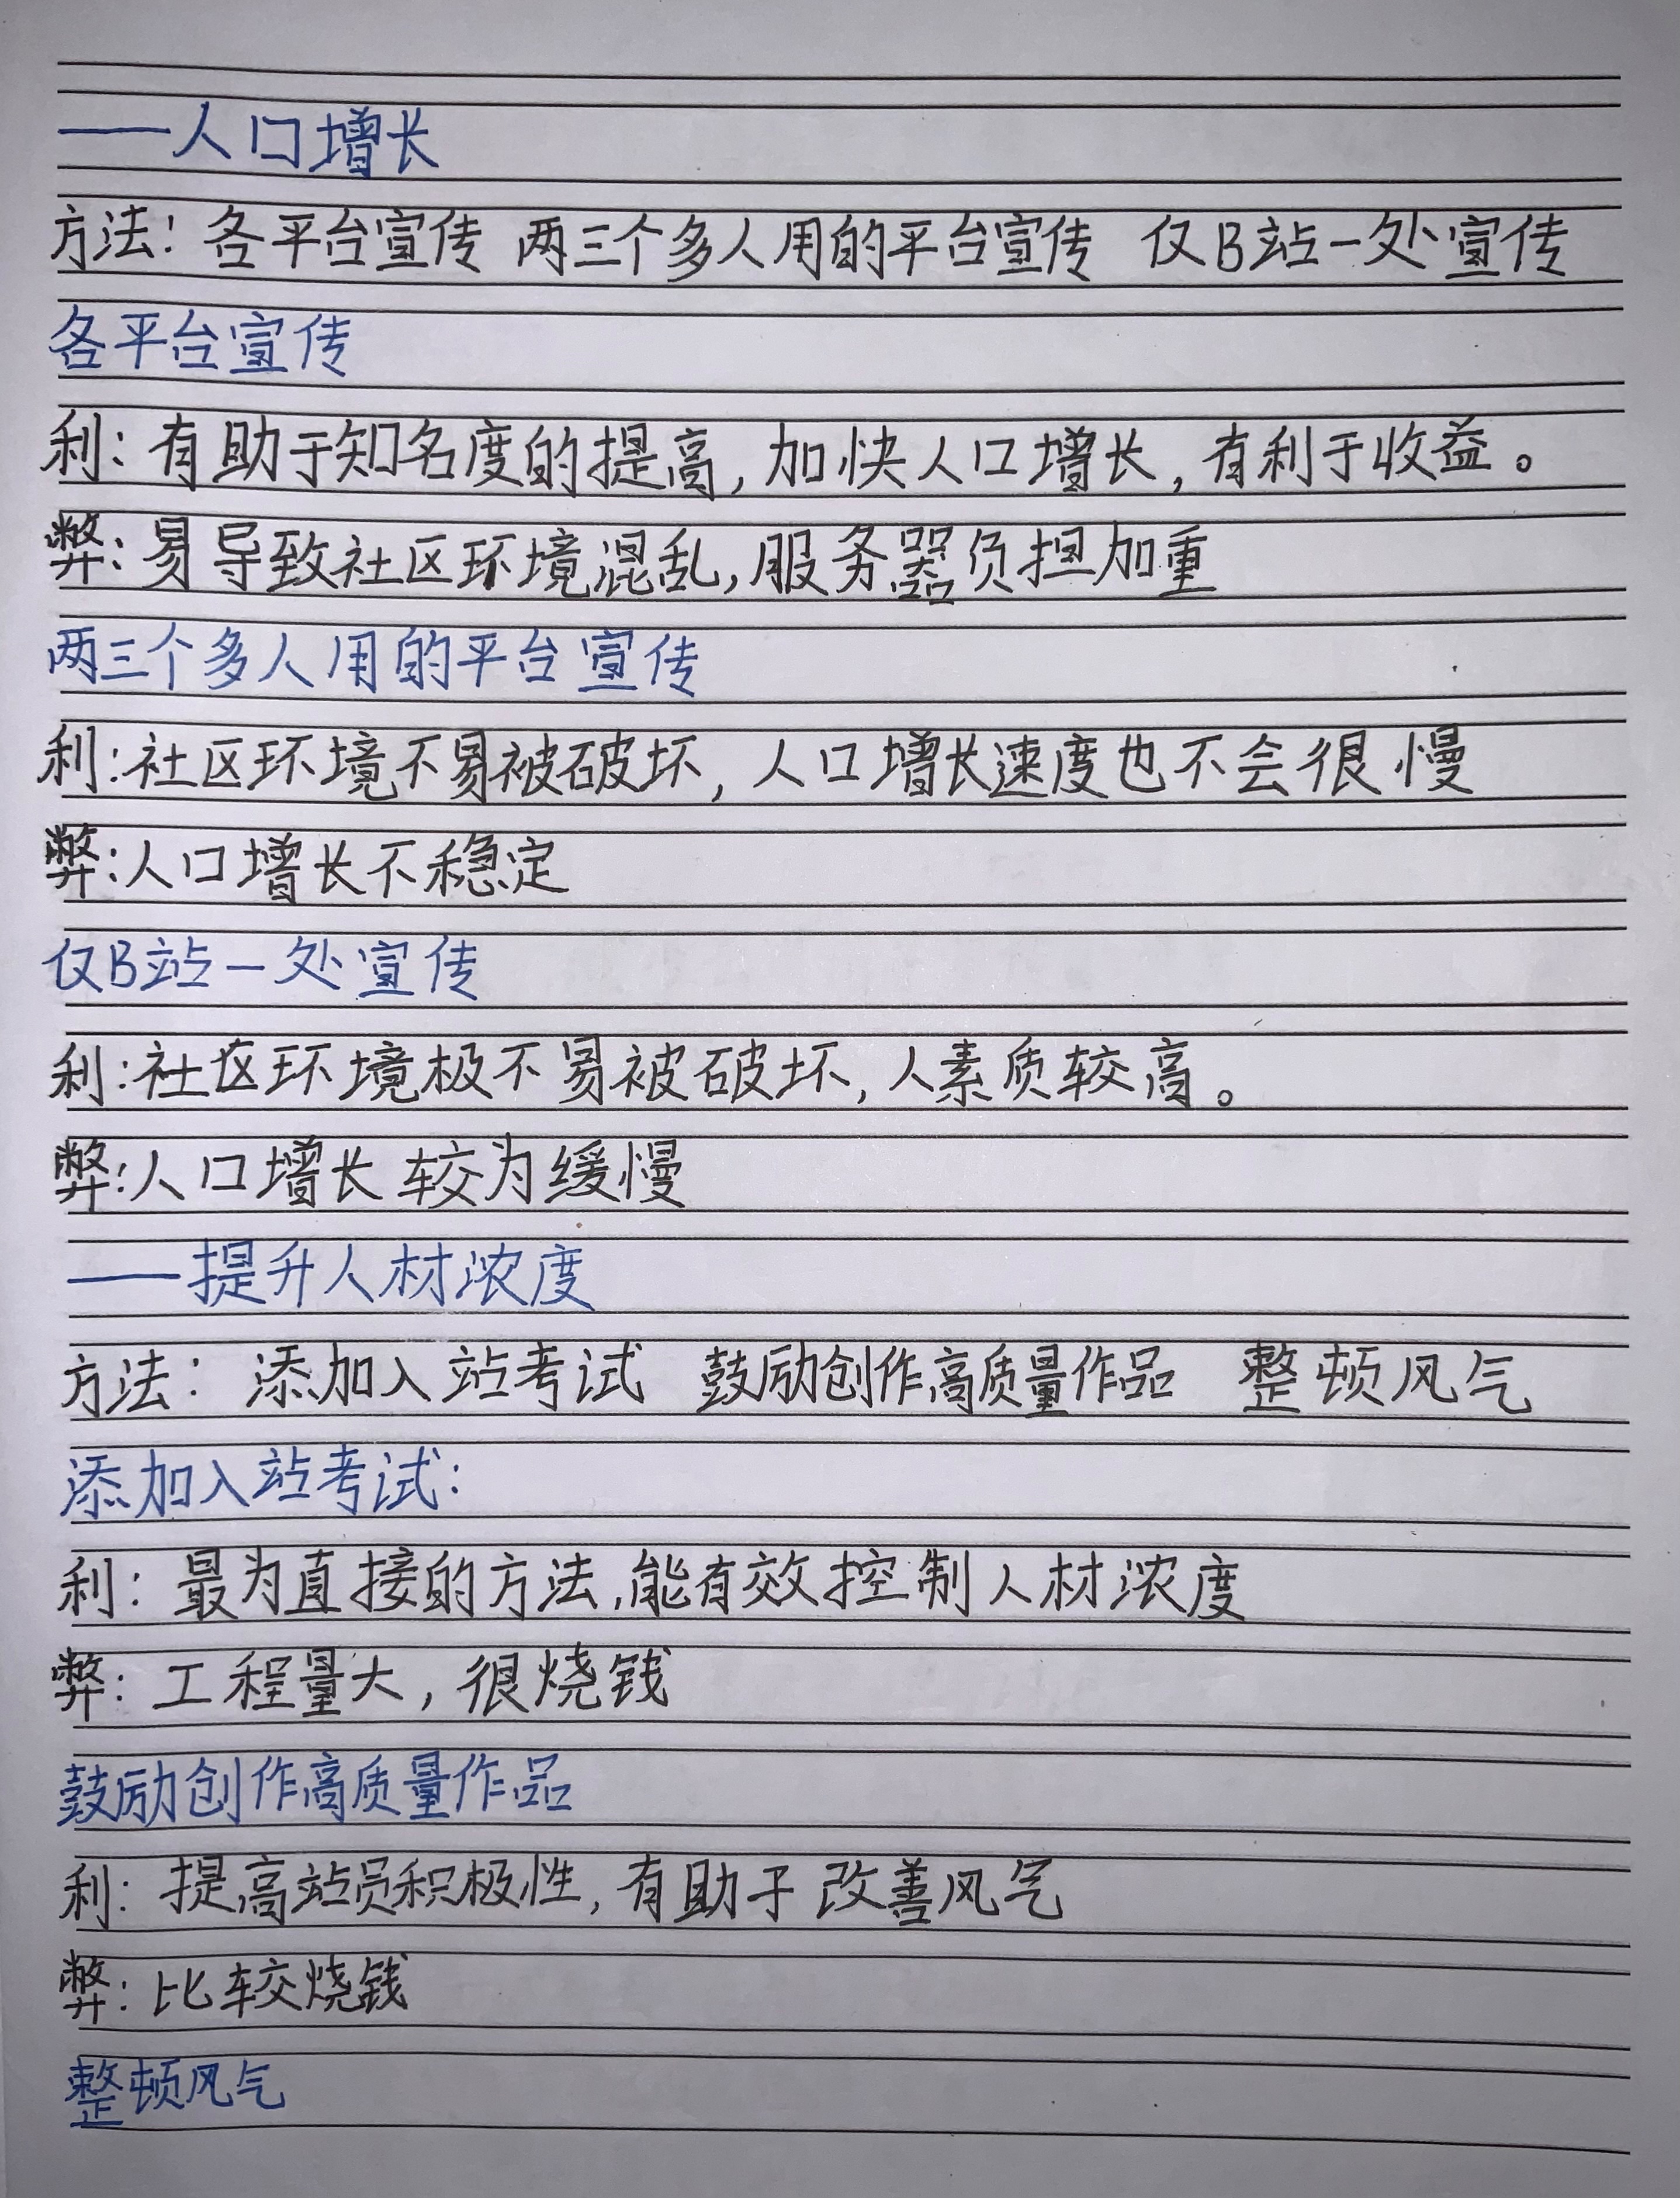 ——人口增长
方法：各平台宣传 两三个多人用的平台宣传 仅B站一处宣传
各平台宣传
利：有助于知名度的提高，加快人口增长，有利于收益。
弊：易导致社区环境混乱，服务器负担加重
两三个多人用的平台宣传
利：社区环境不易被破坏，人口增长速度也不会很慢
弊：人口增长不稳定
仅B站一处宣传
利：社区环境极不易被破坏，人素质较高。
弊：人口增长较为缓慢
——提升人材浓度
方法：添加入站考试 鼓励创作高质量作品 整顿风气
添加入站考试：
利：最为直接的方法，能有效控制人材浓度
弊：工程量大，很烧钱
鼓励创作高质量作品
利：提高站员积极性，有助于改善风气
弊：比较烧钱
整顿风气